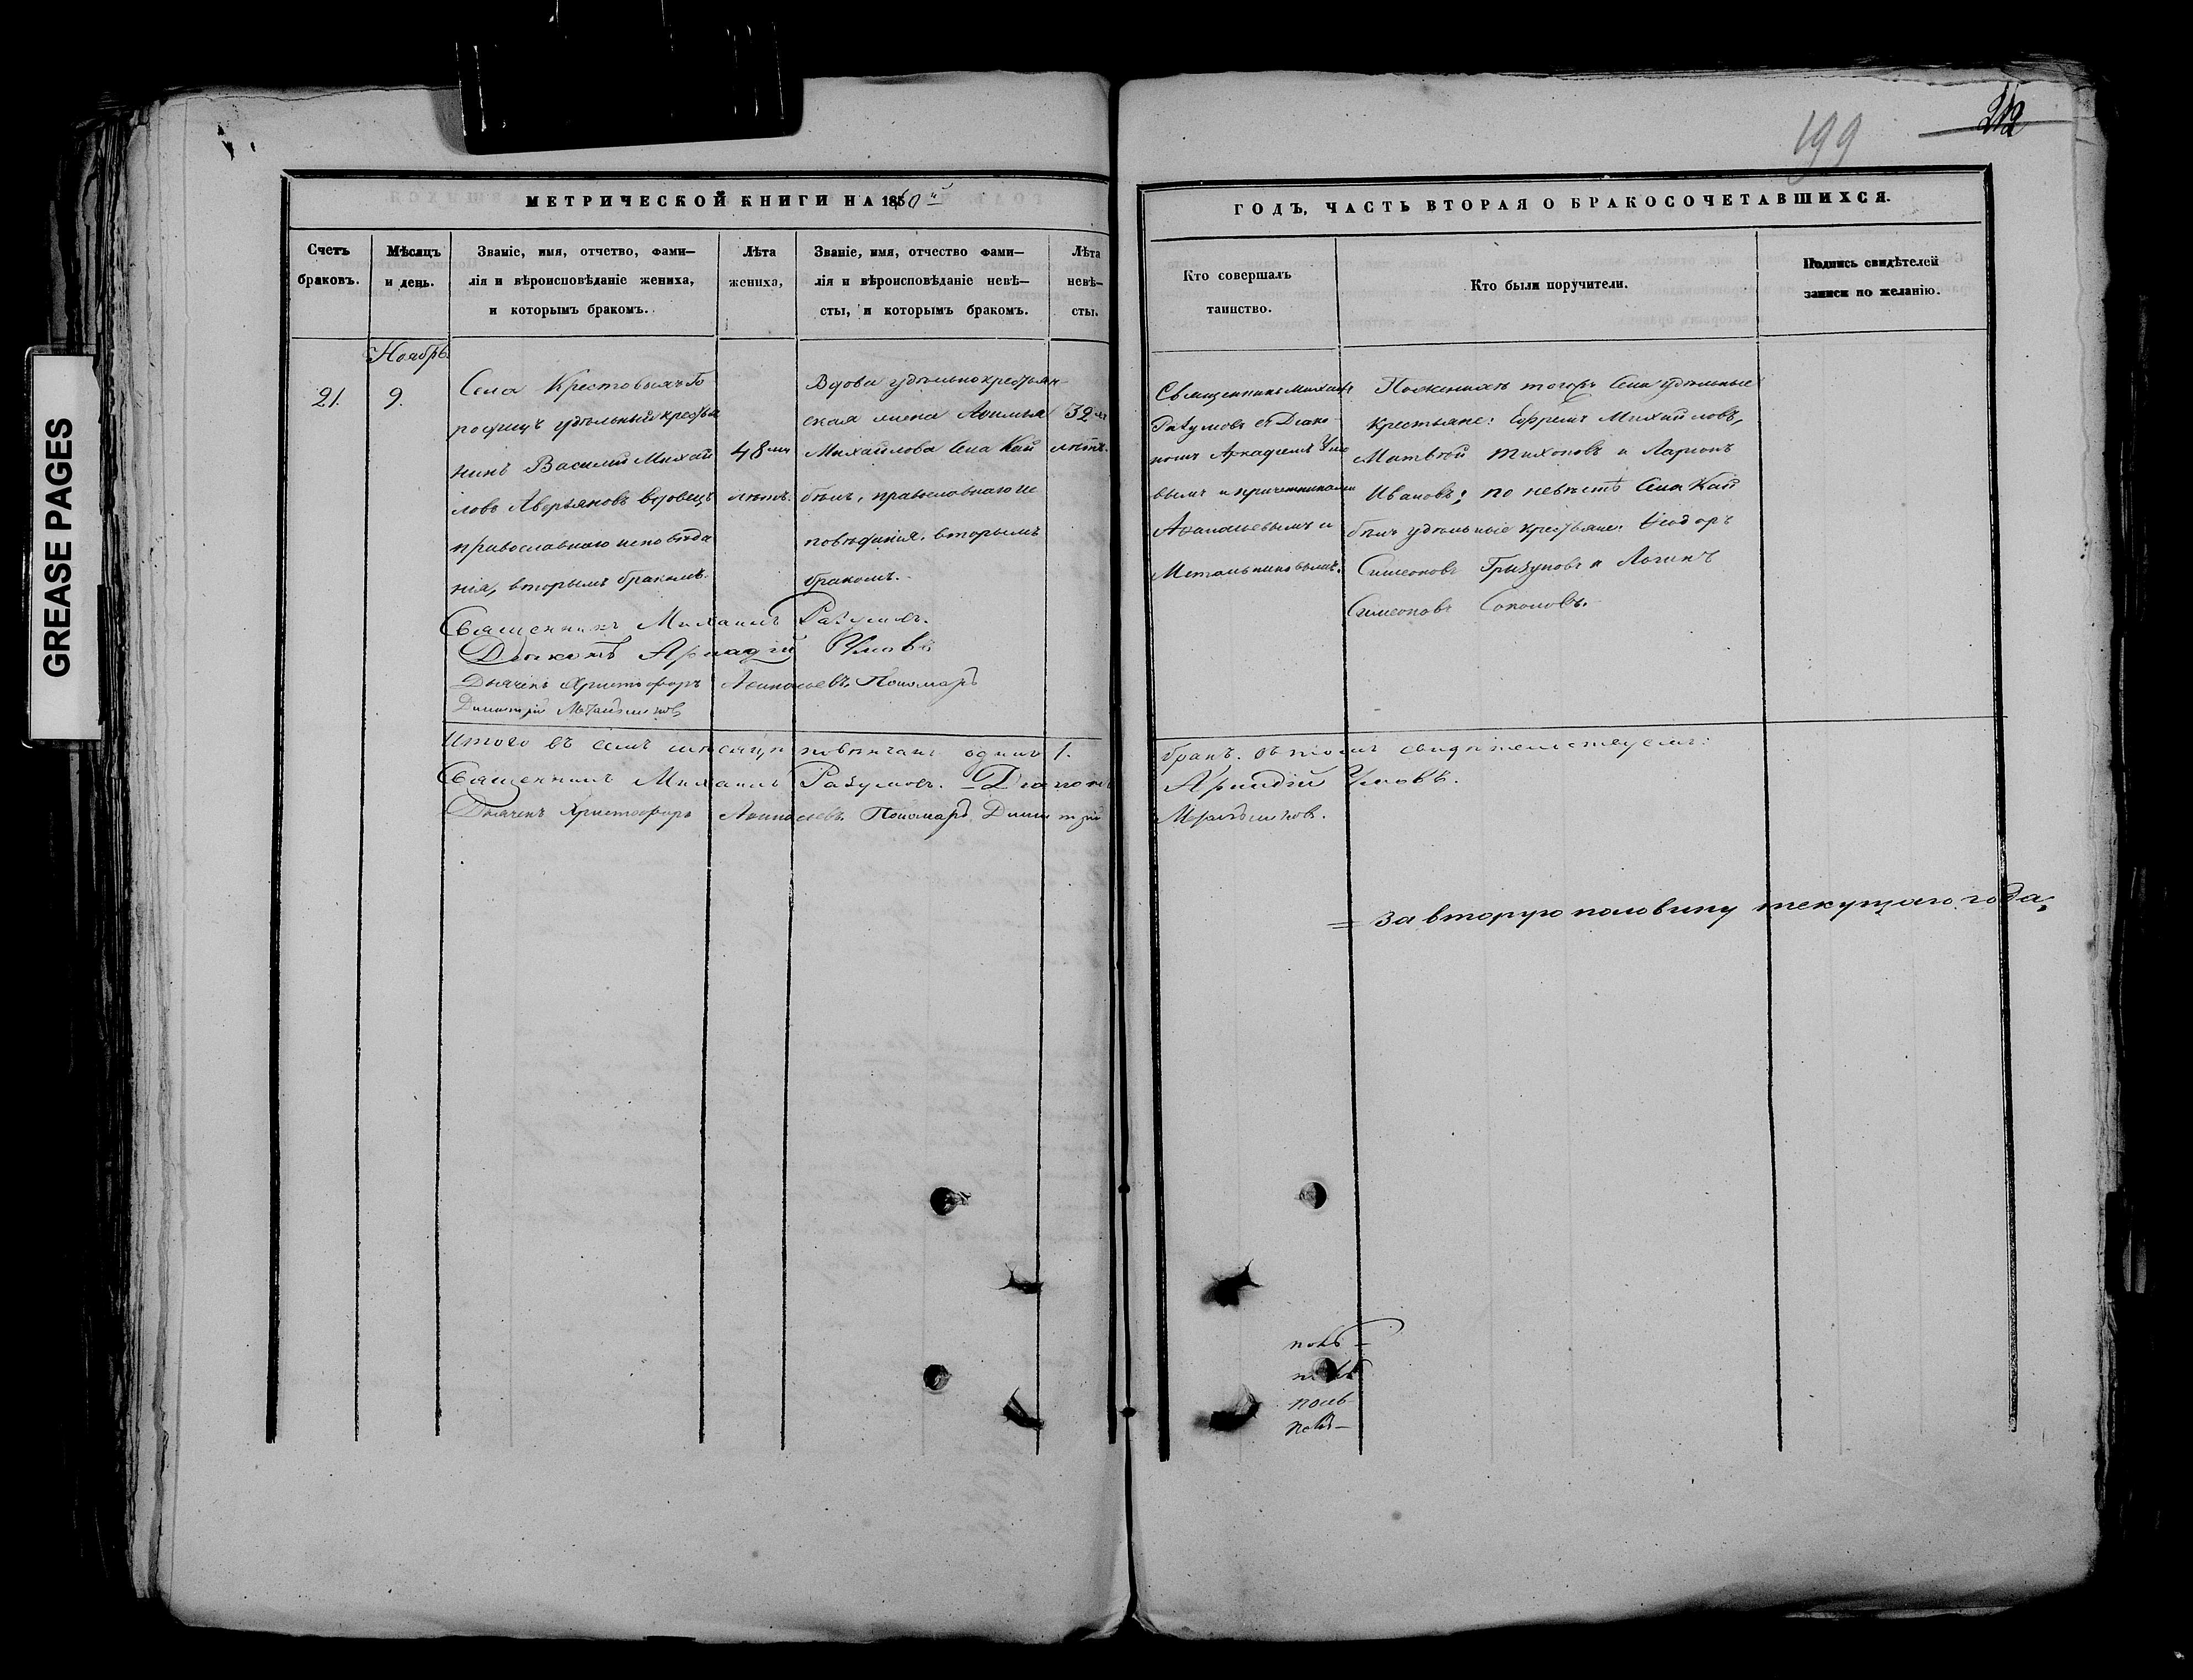 GREASE PAGES
199
212
МЕТРИЧЕСКОЙ КНИГИ НА 1860й
ГОДЪ, ЧАСТЬ ВТОРАЯ О БРАКОСОЧЕТАВШИХСЯ.
Счетъ браковъ.
Мѣсяцъ и день.
Званіе, имя, отчетво, фами—
лія и вѣроисповѣданіе жениха,
и которымъ бракомъ.
Лѣта
жениха,
Званіе, имя, отчество фами—
лія и вѣроисповѣданіе невѣ—
сты, и которымъ бракомъ.
Лѣта
невѣ—
сты.
Кто совершалъ
таинство.
Кто были поручители.
Подпись свидѣтелей
записи по желанію.
Ноябрь
21.
9.
Села Крестовыхъ Го
родищъ удѣльный крестья
нинъ Василій Михай
ловъ Аверьяновъ вдовецъ
православнаго исповѣда
нія, вторымъ бракомъ.
48ми
лѣтъ.
Вдова удѣльнокрестьян
ская жена
Михайлова Села Кай
бѣлъ, православнаго ис
повѣданія, вторымъ
бракомъ.
32хъ
лѣтъ.
Священникъ Михаилъ
Разумовъ съ Діако
номъ Аркадіемъ Умо
вымъ и причетниками
и
Метальниковымъ.
По женихѣ тогожъ Села удѣльные
крестьяне: Ефремъ Михайловъ,
Матвѣй Тихоновъ и Ларіонъ
Ивановъ; по невѣстѣ Села Кай
бѣлъ удѣльные крестьяне: Ѳеодоръ
Симеоновъ Гризуновъ и Логинъ
Симеоновъ Соколовъ.
Священникъ Михаилъ Разумовъ.
Діаконъ Аркадій Умовъ
Дьячекъ Христофоръ Пономарь
Димитрій Метальниковъ
Итого въ семъ мѣсяцѣ повѣнчанъ одинъ 1. бракъ. въ томъ свидѣтельствуемъ:
Священникъ Михаилъ Разумовъ. Діаконъ Аркадій Умовъ.
Дьячекъ Христофоръ Пономарь Димитрій Метальниковъ.
= За вторую половину текущаго года,